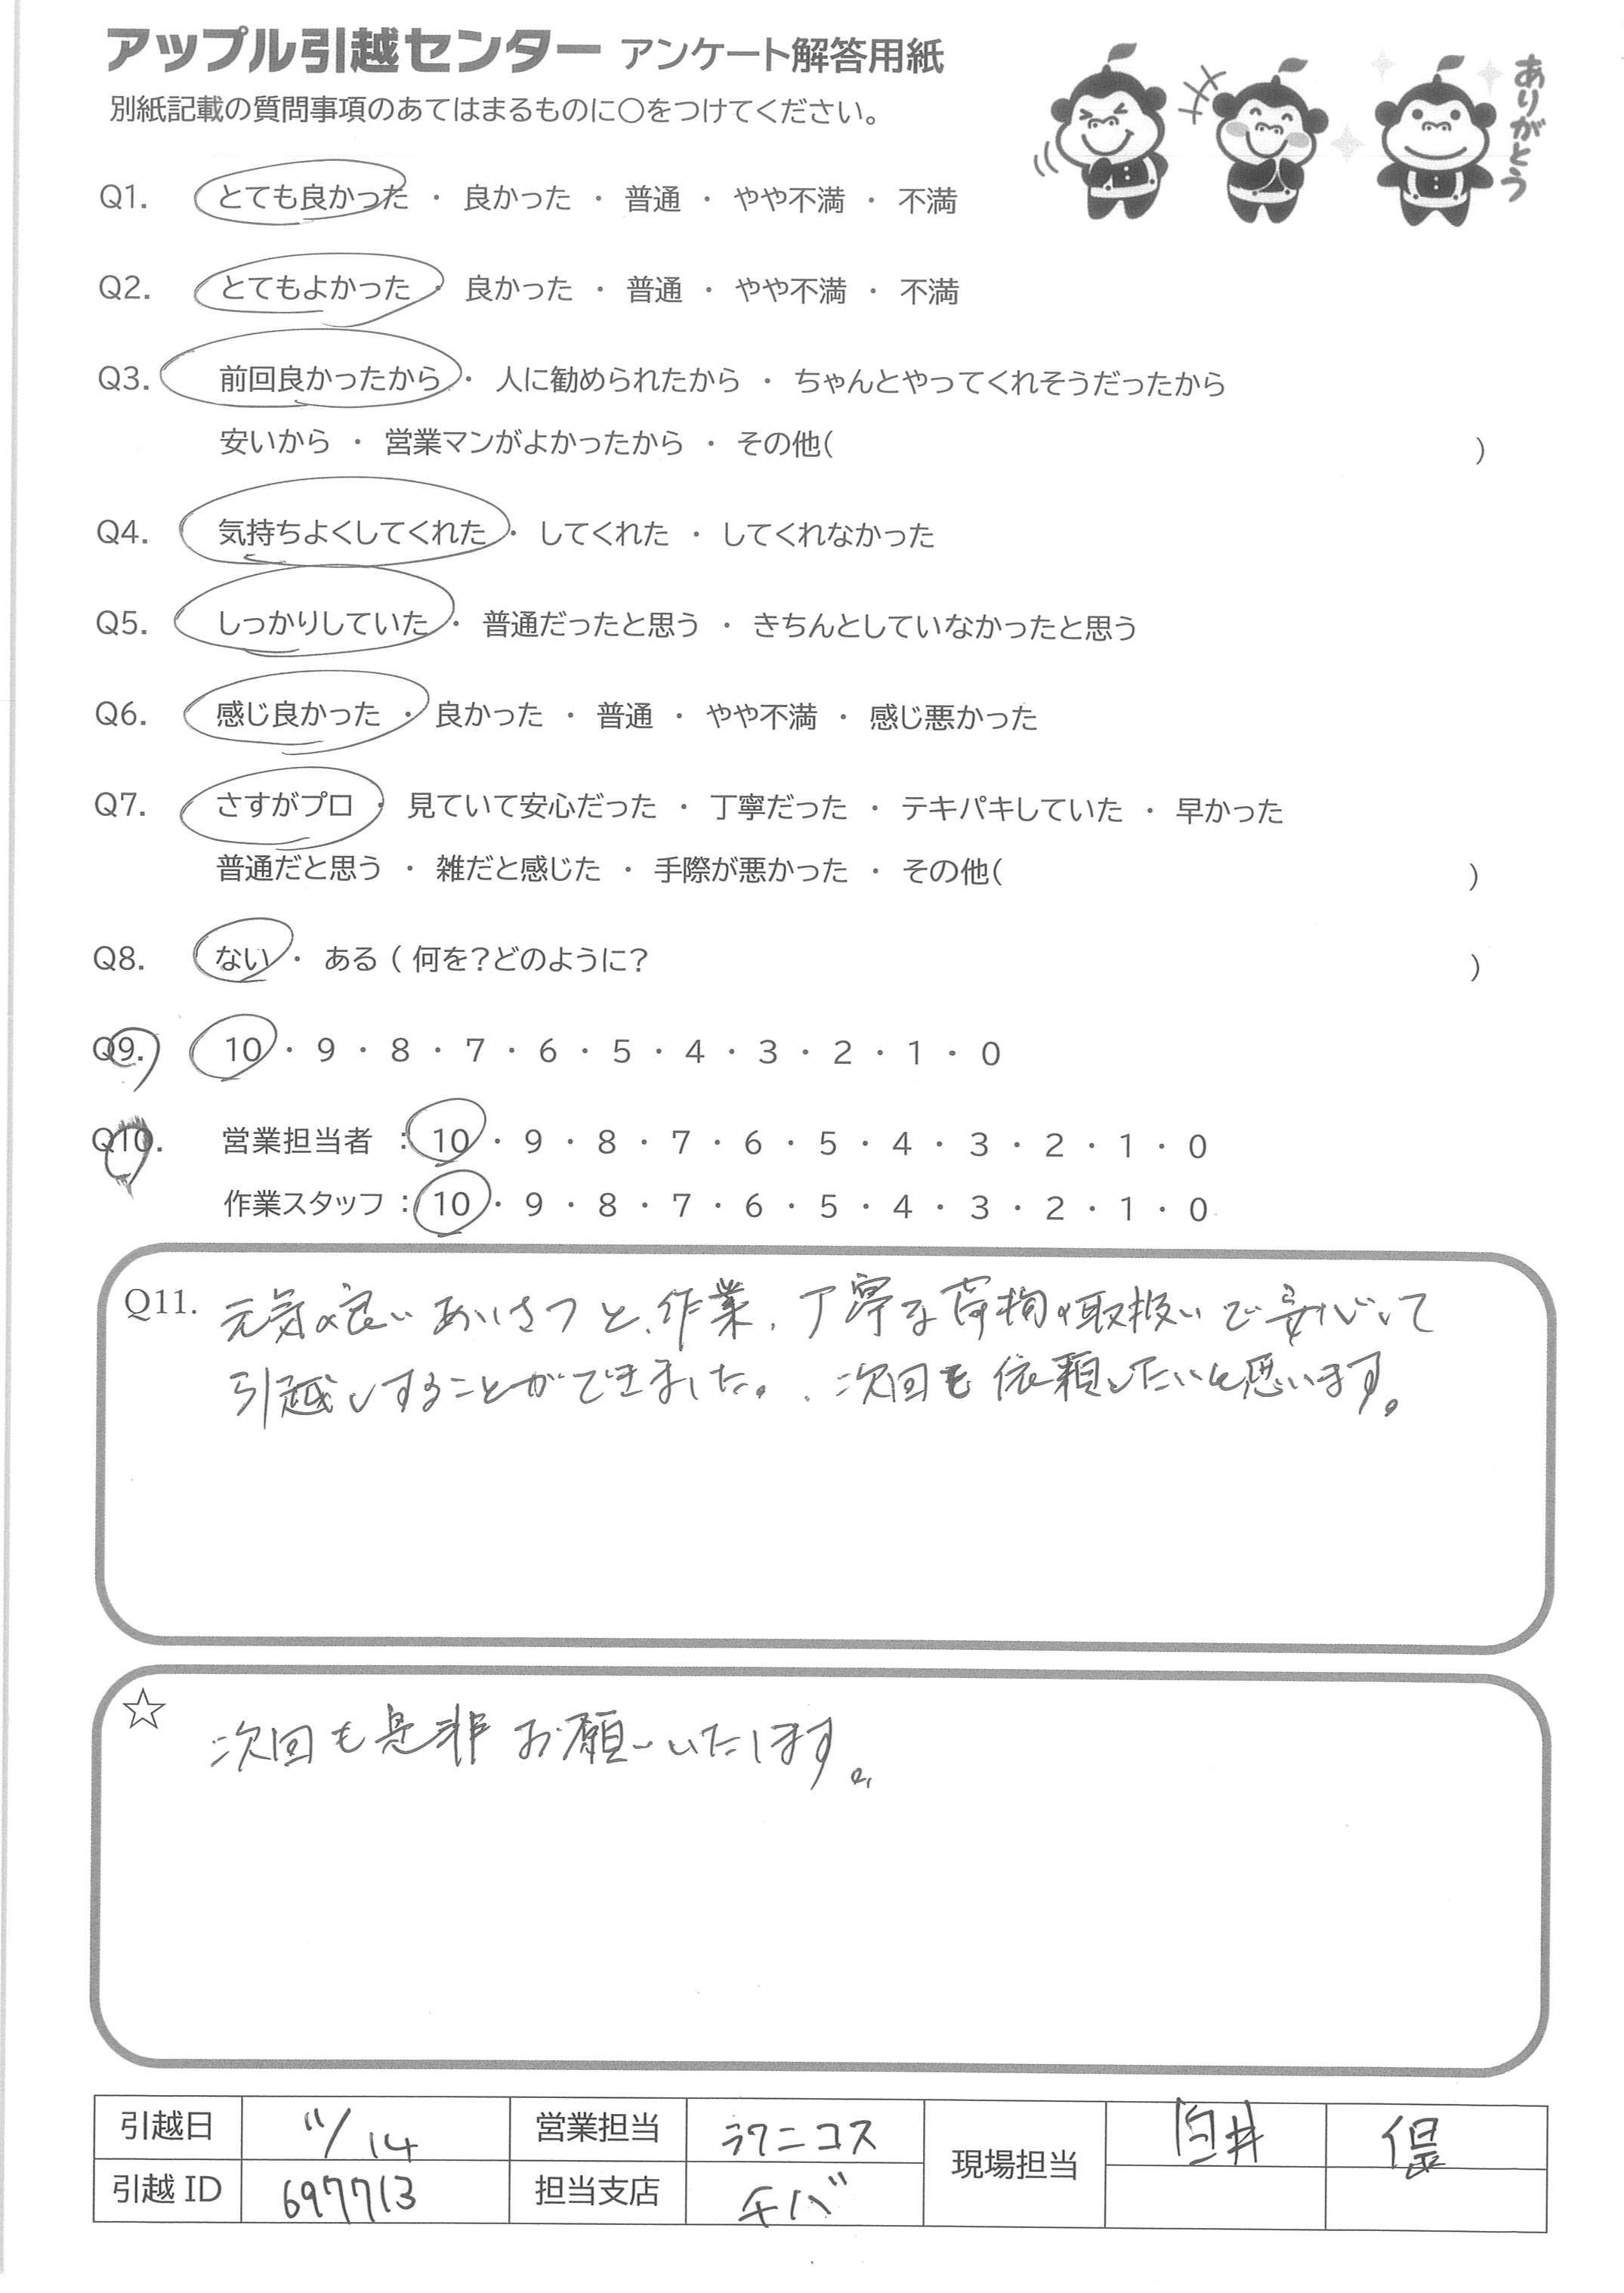 アップル引越センター アンケート解答用紙
別紙記載の質問事項のあてはまるものに○をつけてください。
ありがとう
Q1. とても良かった ・ 良かった ・ 普通 ・ やや不満 ・ 不満
Q2. とてもよかった ・ 良かった ・ 普通 ・ やや不満 ・ 不満
Q3. 前回良かったから ・ 人に勧められたから ・ ちゃんとやってくれそうだったから
安いから ・ 営業マンがよかったから ・ その他( )
Q4. 気持ちよくしてくれた ・ してくれた ・ してくれなかった
Q5. しっかりしていた ・ 普通だったと思う ・ きちんとしていなかったと思う
Q6. 感じ良かった ・ 良かった ・ 普通 ・ やや不満 ・ 感じ悪かった
Q7. さすがプロ ・ 見ていて安心だった ・ 丁寧だった ・ テキパキしていた ・ 早かった
普通だと思う ・ 雑だと感じた ・ 手際が悪かった ・ その他( )
Q8. ない ・ ある ( 何を?どのように? )
Q9. 10 ・ 9 ・ 8 ・ 7 ・ 6 ・ 5 ・ 4 ・ 3 ・ 2 ・ 1 ・ 0
Q10. 営業担当者 : 10 ・ 9 ・ 8 ・ 7 ・ 6 ・ 5 ・ 4 ・ 3 ・ 2 ・ 1 ・ 0
作業スタッフ : 10 ・ 9 ・ 8 ・ 7 ・ 6 ・ 5 ・ 4 ・ 3 ・ 2 ・ 1 ・ 0
Q11. 元気の良いあいさつと、作業、丁寧な荷物の取扱いで安心して
引越しすることができました。次回も依頼したいと思います。
☆ 次回も是非お願いいたします。
引越日 11/14 営業担当 ラクニコス 現場担当 臼井
引越ID 697713 担当支店 チバ